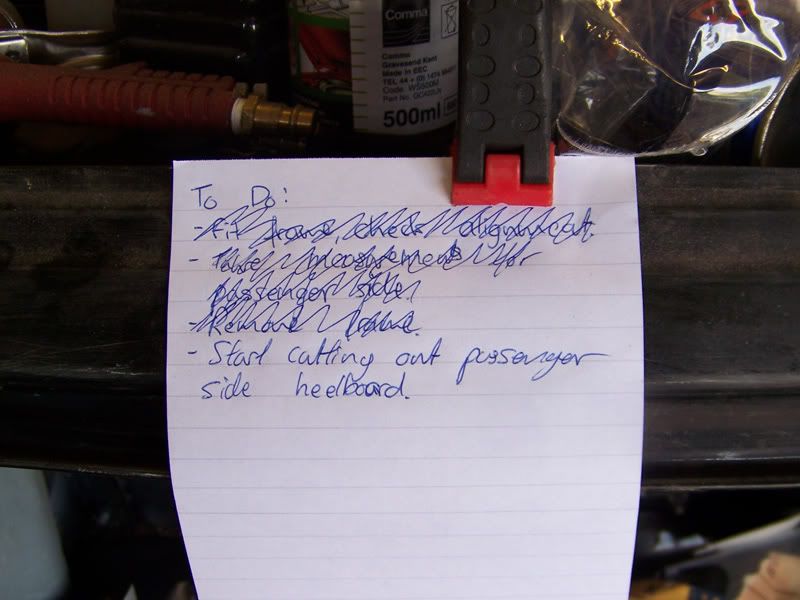 Comma
Comma
Gravesend Kent
Made in EEC
500ml
To Do:
- Fit frame, check alignment.
- Take measurements for
passenger side.
- Remove frame.
- Start cutting out passenger
side heelboard.